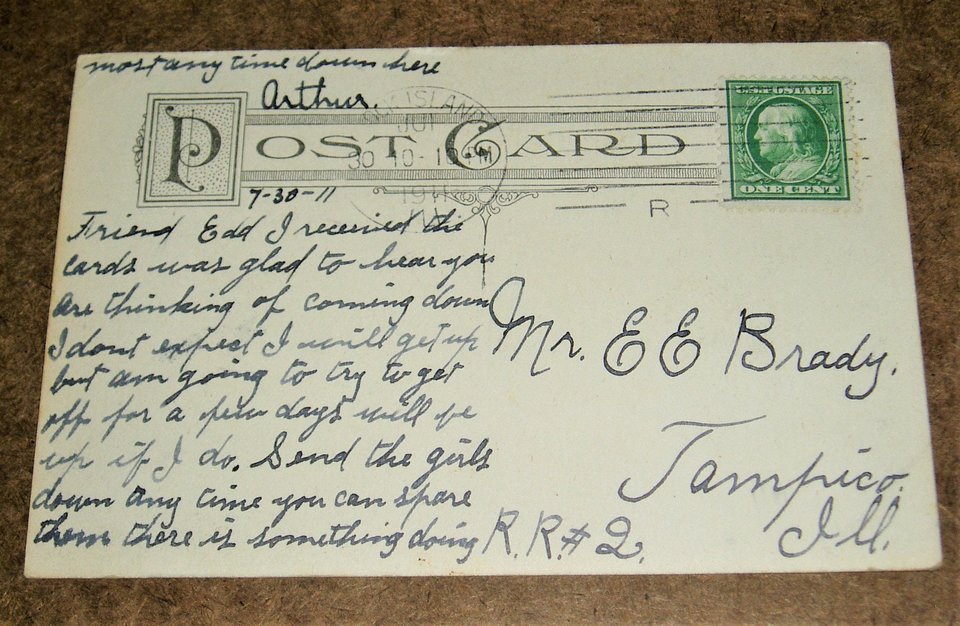 most any time down here
Arthur.
POST CARD
ISLAND
30 10-
1911
U.S. POSTAGE
ONE CENT
R
7-30-11
Friend Edd I received the
cards was glad to hear you
are thinking of coming down
I dont expect I will get up
but am going to try to get
off for a few days will be
up if I do. Send the girls
down any time you can spare
them there is something doing
Mr. E E Brady.
Tampico.
Ill.
R. R. # 2.